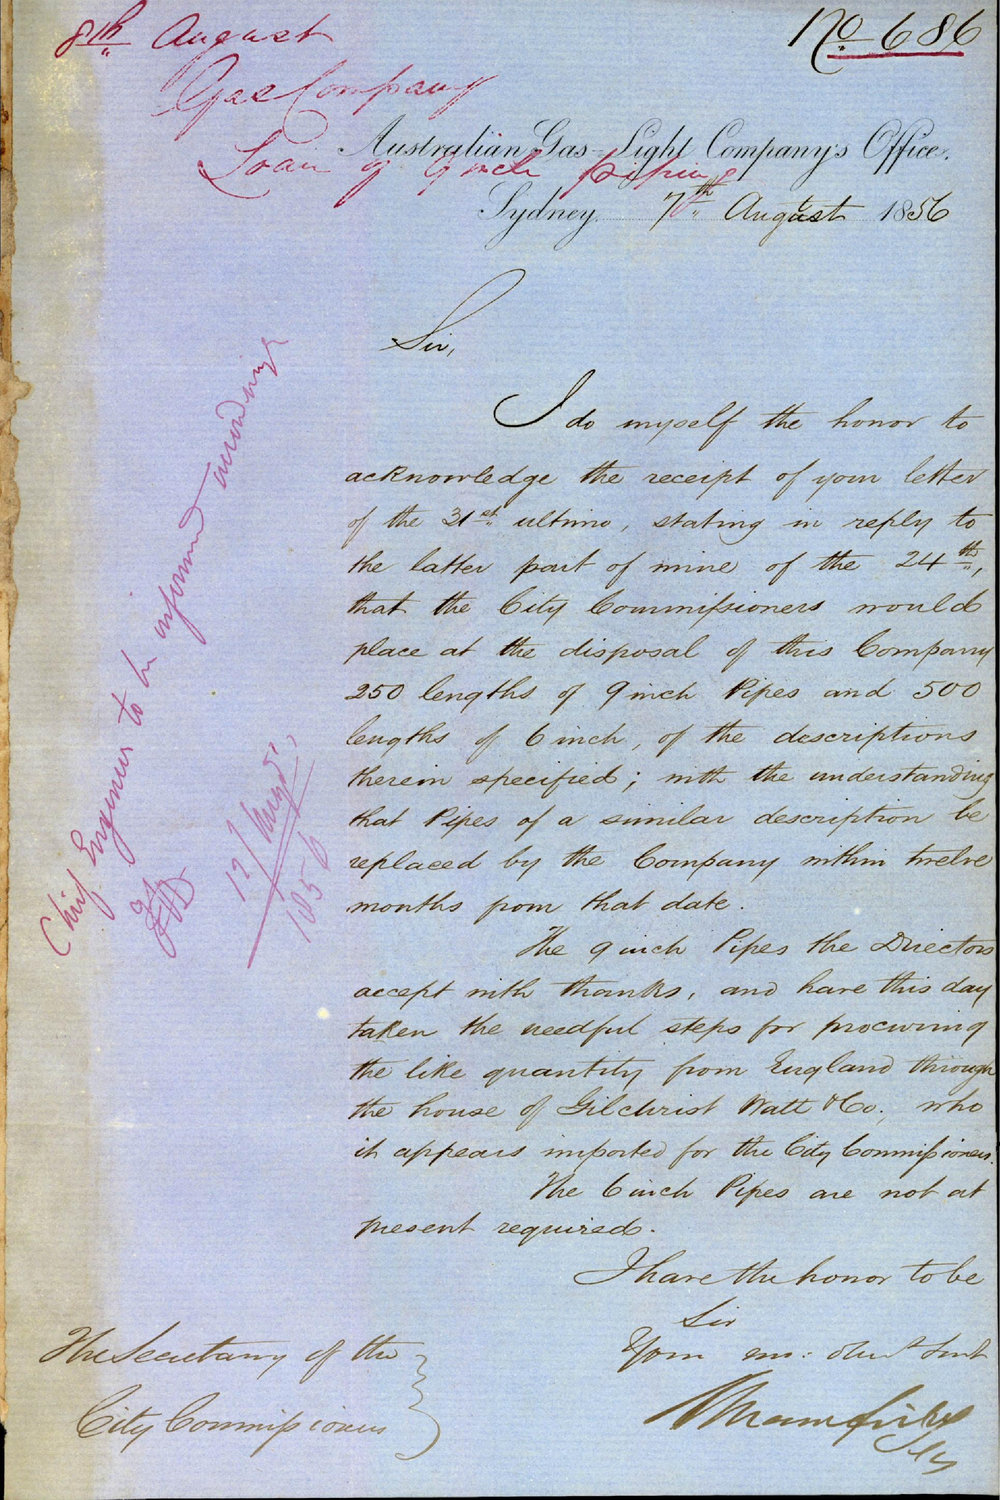 8th August
No 686
Gas Company
Loan of 9 inch piping
Australian Gas-Light Company's Office.
Sydney 7th August 1856
Sir,
I do myself the honor to
acknowledge the receipt of your letter
of the 31st ultimo, stating in reply to
the latter part of mine of the 24th,
that the City Commissioners would
place at the disposal of this Company
250 lengths of 9 inch Pipes and 500
lengths of 6 inch, of the descriptions
therein specified; with the understanding
that Pipes of a similar description be
replaced by the Company within twelve
months from that date.
The 9 inch Pipes the Directors
accept with thanks, and have this day
taken the needful steps for procuring
the like quantity from England through
the house of Gilchrist Watt & Co., who
it appears imported for the City Commissioners.
The 6 inch Pipes are not at
present required.
I have the honor to be
Sir
Your mo: obedt Servt
The Secretary of the
City Commissioners
Chief Engineer to be informed accordingly
August
1856